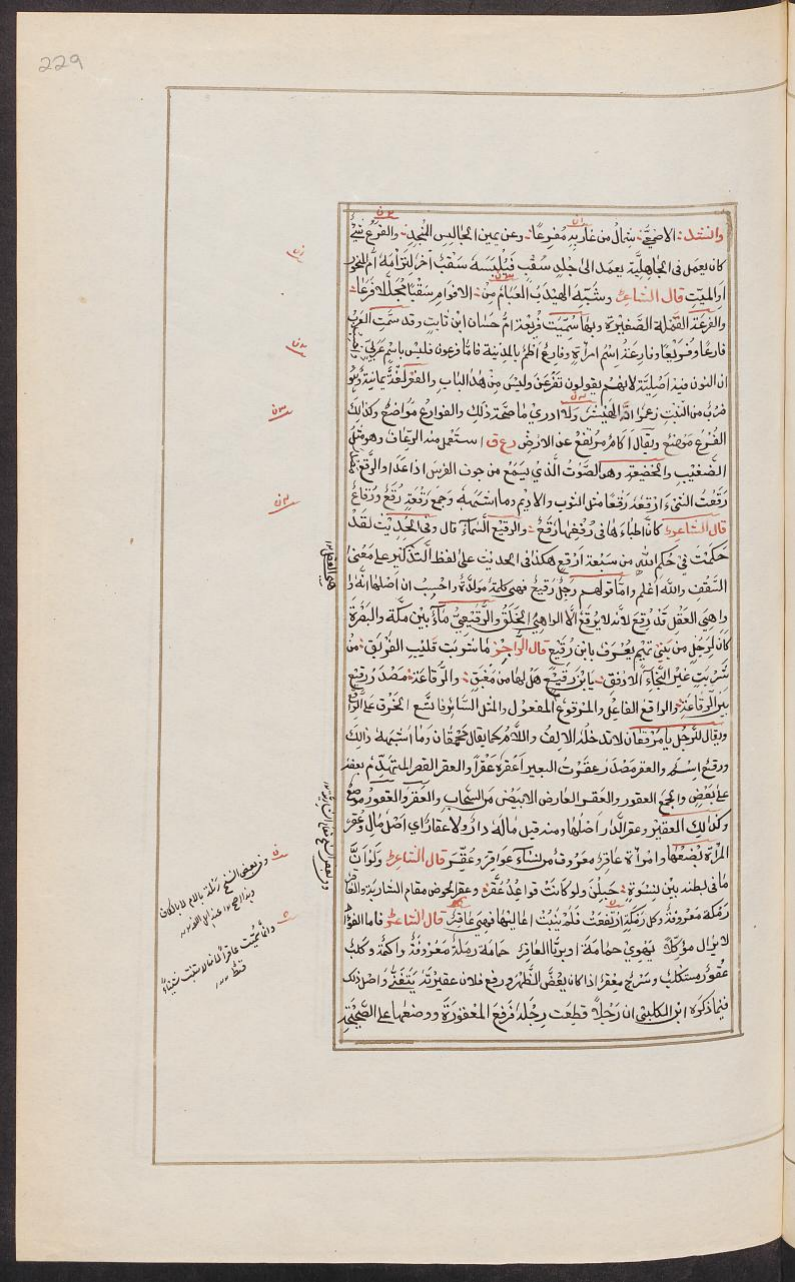 229
وانشد: الاصمعي: شمال من غاربه مفرعا: وعن يمين الجالس المنجد: والفرع شئ
كان يعمل في الجاهلية يعمد الى جلد سقب فيلبسه سقب اخر لترامه ام المنحور
او الميت قال الشاعر وشبه الهيدب العبام من: الاقوام سقبا مجللا فرعا:
والفرعة القملة الصغيرة وبها سميت فريعة ام حسان ابن ثابت وقد سمت العرب
فارعا وفريعا وفارعة اسم امراة وفارع اطم بالمدينة فاما فرعون فليس باسم عربي
ان النون فيه اصلية لانهم يقولون تفرعن وليس من هذا الباب والفرع لغة يمانية وهو
ضرب من النبت زعموا انه الهيشر ولا ادري ما صحة ذلك والفوارع مواضع وكذلك
الفرع موضع ويقال اكام مرتفع عن الارض رع ق استعمل منه الرعاق وهو مثل
الضغيب والخضيعة وهو الصوت الذي يسمع من جوف الفرس اذا عدا والرقع
رقعت الشئ ارقعه رقعا مثل الثوب والاديم وما اشبهه وجمع رقعة رقع ورقاع
قال الشاعر كان اطباءها في رفغها رقع: والرقيع السماء قال وفي الحديث لقد
حكمت في حكم الله من سبعة ارقع هكذا في الحديث على لفظ التذكير على معنى
السقف والله اعلم واما قولهم رجل رقيع فهي كلمة مولدة واحسب ان اصلها انه
واهي العقل قد رقع لانه لا يرقع الا الواهي الخلق والرقيعي ماء بين مكة والبصرة
كان لرجل من بني تميم يعرف بابن رقيع قال الراجز ما شربت قليب الفرلق: من
شربت غير النجاء الادفق: يابن رقيع هل لها من مغبق: والرقاعة: مصدر رقيع
بين الرقاعة: والراقع الفاعل والمرقوع المفعول والمثل السائر فاتسع الخرق على الراقع
ويقال للرجل يا مرقعان لا تدخله الالف واللام كما يقال محمقان وما اشبهه ذالك
ورقيع اسم والعقر مصدر عقرت البعير اعقره عقرا والعقر القصر المتهدم بعضه
على بعض والجمع العقور والعقر العارض الابيض من السحاب والعقر والعقور موضع
وكذلك العقير وعقر الدار اصلها ومنه قيل ماله دار ولا عقار اي اصل مال وعقر
المراة بضعها وامراة عاقر معروف من نساء عواقر وعقر قال الشاعر ولو ان
ما في بطنه بين نسوة: حبلن ولو كانت قواعد عقرا: وعقر الحوض مقام الشاربة والعاقر
رملة معروفة وكل رملة ارتفعت فلم ينبت اعاليها فهي عاقر قال الشاعر فاما الفؤاد
لا يزال موكلا يهوي حمامة: اوبرتا العاقر حمامة رملة معروفة واكمة وكلب
عقور مستكلب وسرج معقر اذا كان يعض الظهر ورفع فلان عقيرته يتغنى واصل ذلك
فيما ذكره ابن الكلبي ان رجلا قطعت رجله فرفع المعقورة ووضعها على الصحيحة